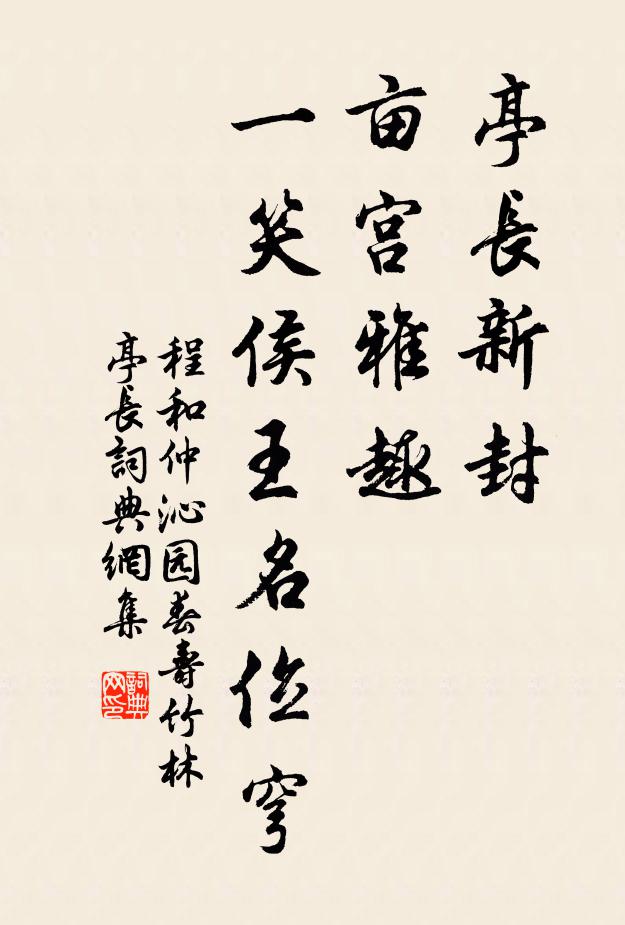 亭長新封
亩宫雅趣
一笑侯王名位穹
程和仲沁园春寿竹林
亭長詞典網集
詞典网印